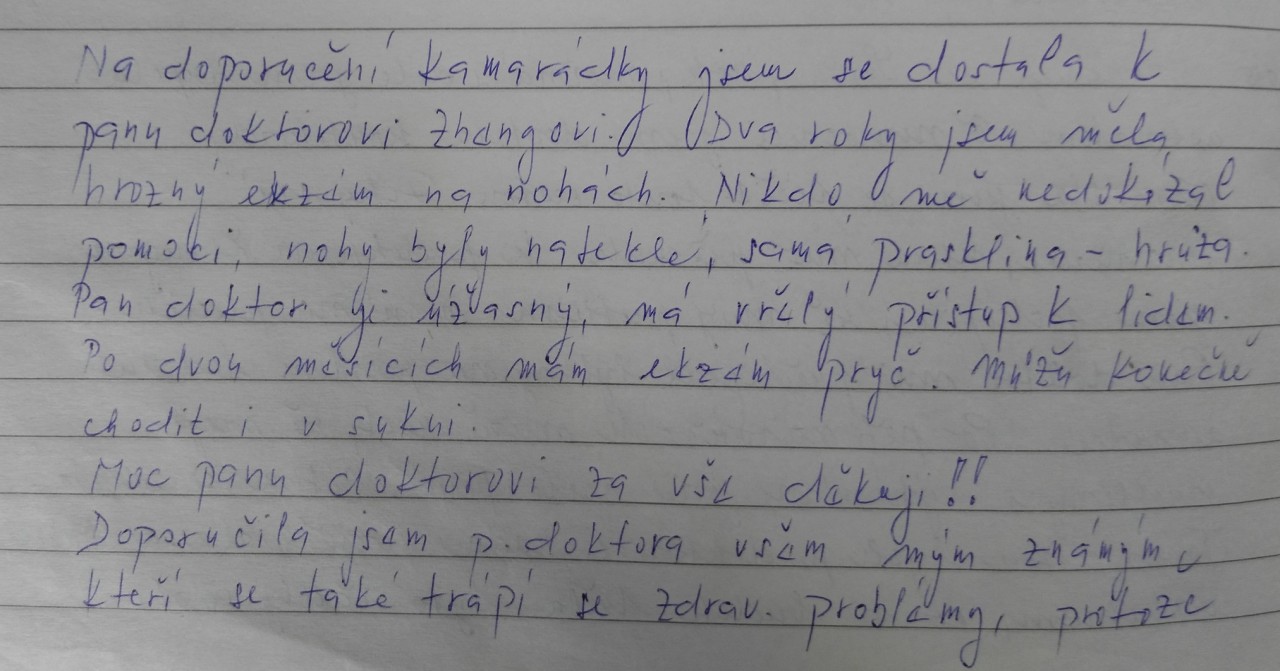 Na doporučení kamarádky jsem se dostala k
panu doktorovi Zhangovi. Dva roky jsem měla
hrozný ekzém na nohách. Nikdo mě nedokázal
pomoci, nohy byly nateklé, samá prasklina - hrůza.
Pan doktor je úžasný, má vřelý přístup k lidem.
Po dvou měsících mám ekzém pryč. Můžu konečně
chodit i v sukni.
Moc panu doktorovi za vše děkuji!!
Doporučila jsem p. doktora všem mým známým,
kteří se také trápí se zdrav. problémy, protože